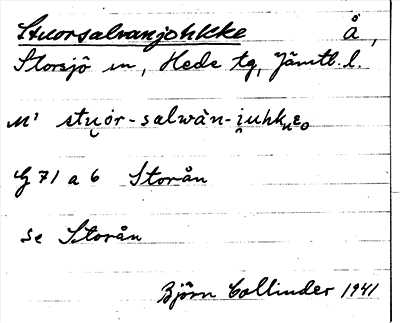 Stuorsalvanjohkke Å,
Storsjö sn, Hede tg, Jämtl. l.
M¹ stu̯ȯr-salwàn-i̯uhkₙεo
G 71 a 6 Storån
se Storån
Björn Collinder 1941